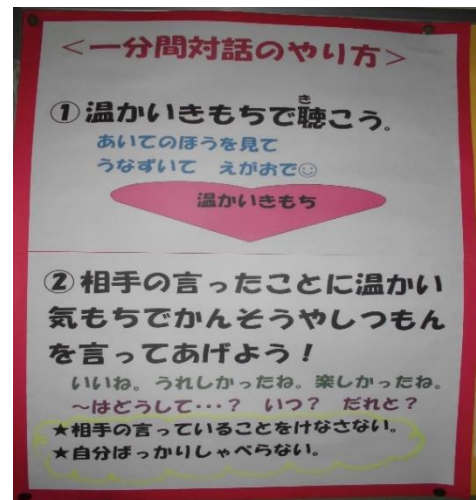 ＜一分間対話のやり方＞
①温かいきもちで聴こう。
き
あいてのほうを見て
うなずいて　えがおで☺
温かいきもち
②相手の言ったことに温かい
気もちでかんそうやしつもん
を言ってあげよう！
いいね。うれしかったね。楽しかったね。
～はどうして・・・？　いつ？　だれと？
★相手の言っていることをけなさない。
★自分ばっかりしゃべらない。